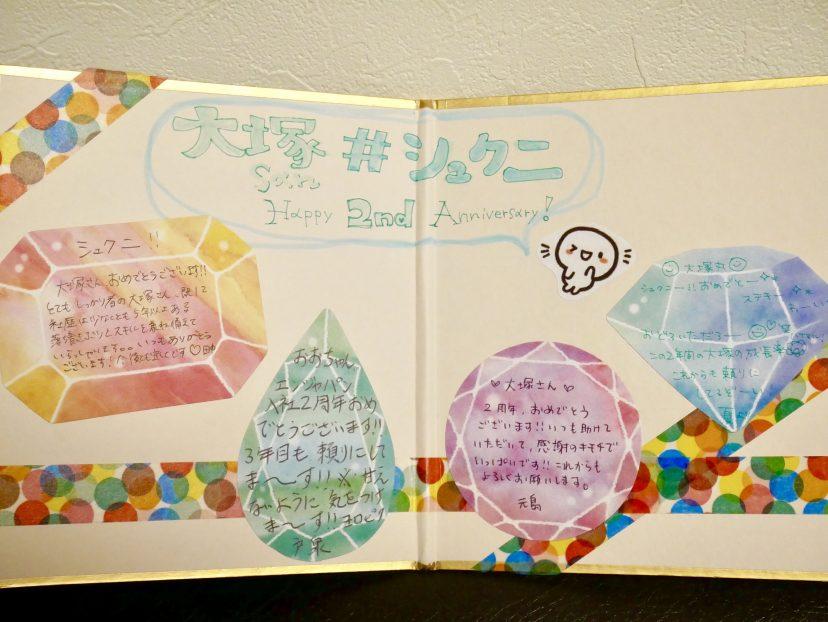 大塚 #シュクニ
San
Happy 2nd Anniversary!
シュクニ!!
大塚さん、おめでとうございます!!
とてもしっかり者の大塚さん、既に
社歴は少なくとも5年以上ある
落着きぶりとスキルを兼ね備えて
いらっしゃいます。。いつもありがとう
ございます!今後も宜しくです♡
おおちゃん
エンジャパン
入社2周年おめ
でとうございます!!
3年目も頼りにして
ま〜〜す!!※甘え
ないように気をつけ
ま〜す!!ヨロピク
戸栗
♡大塚さん♡
2周年、おめでとう
ございます!!いつも助けて
いただいて、感謝のキモチで
いっぱいです!!これからも
よろしくお願いします。
元島
大塚丸
シュクニー!!おめでとー
ステキー
おどろいただろー
この2年間の大塚の成長率
これからも頼りに
してるぞーい